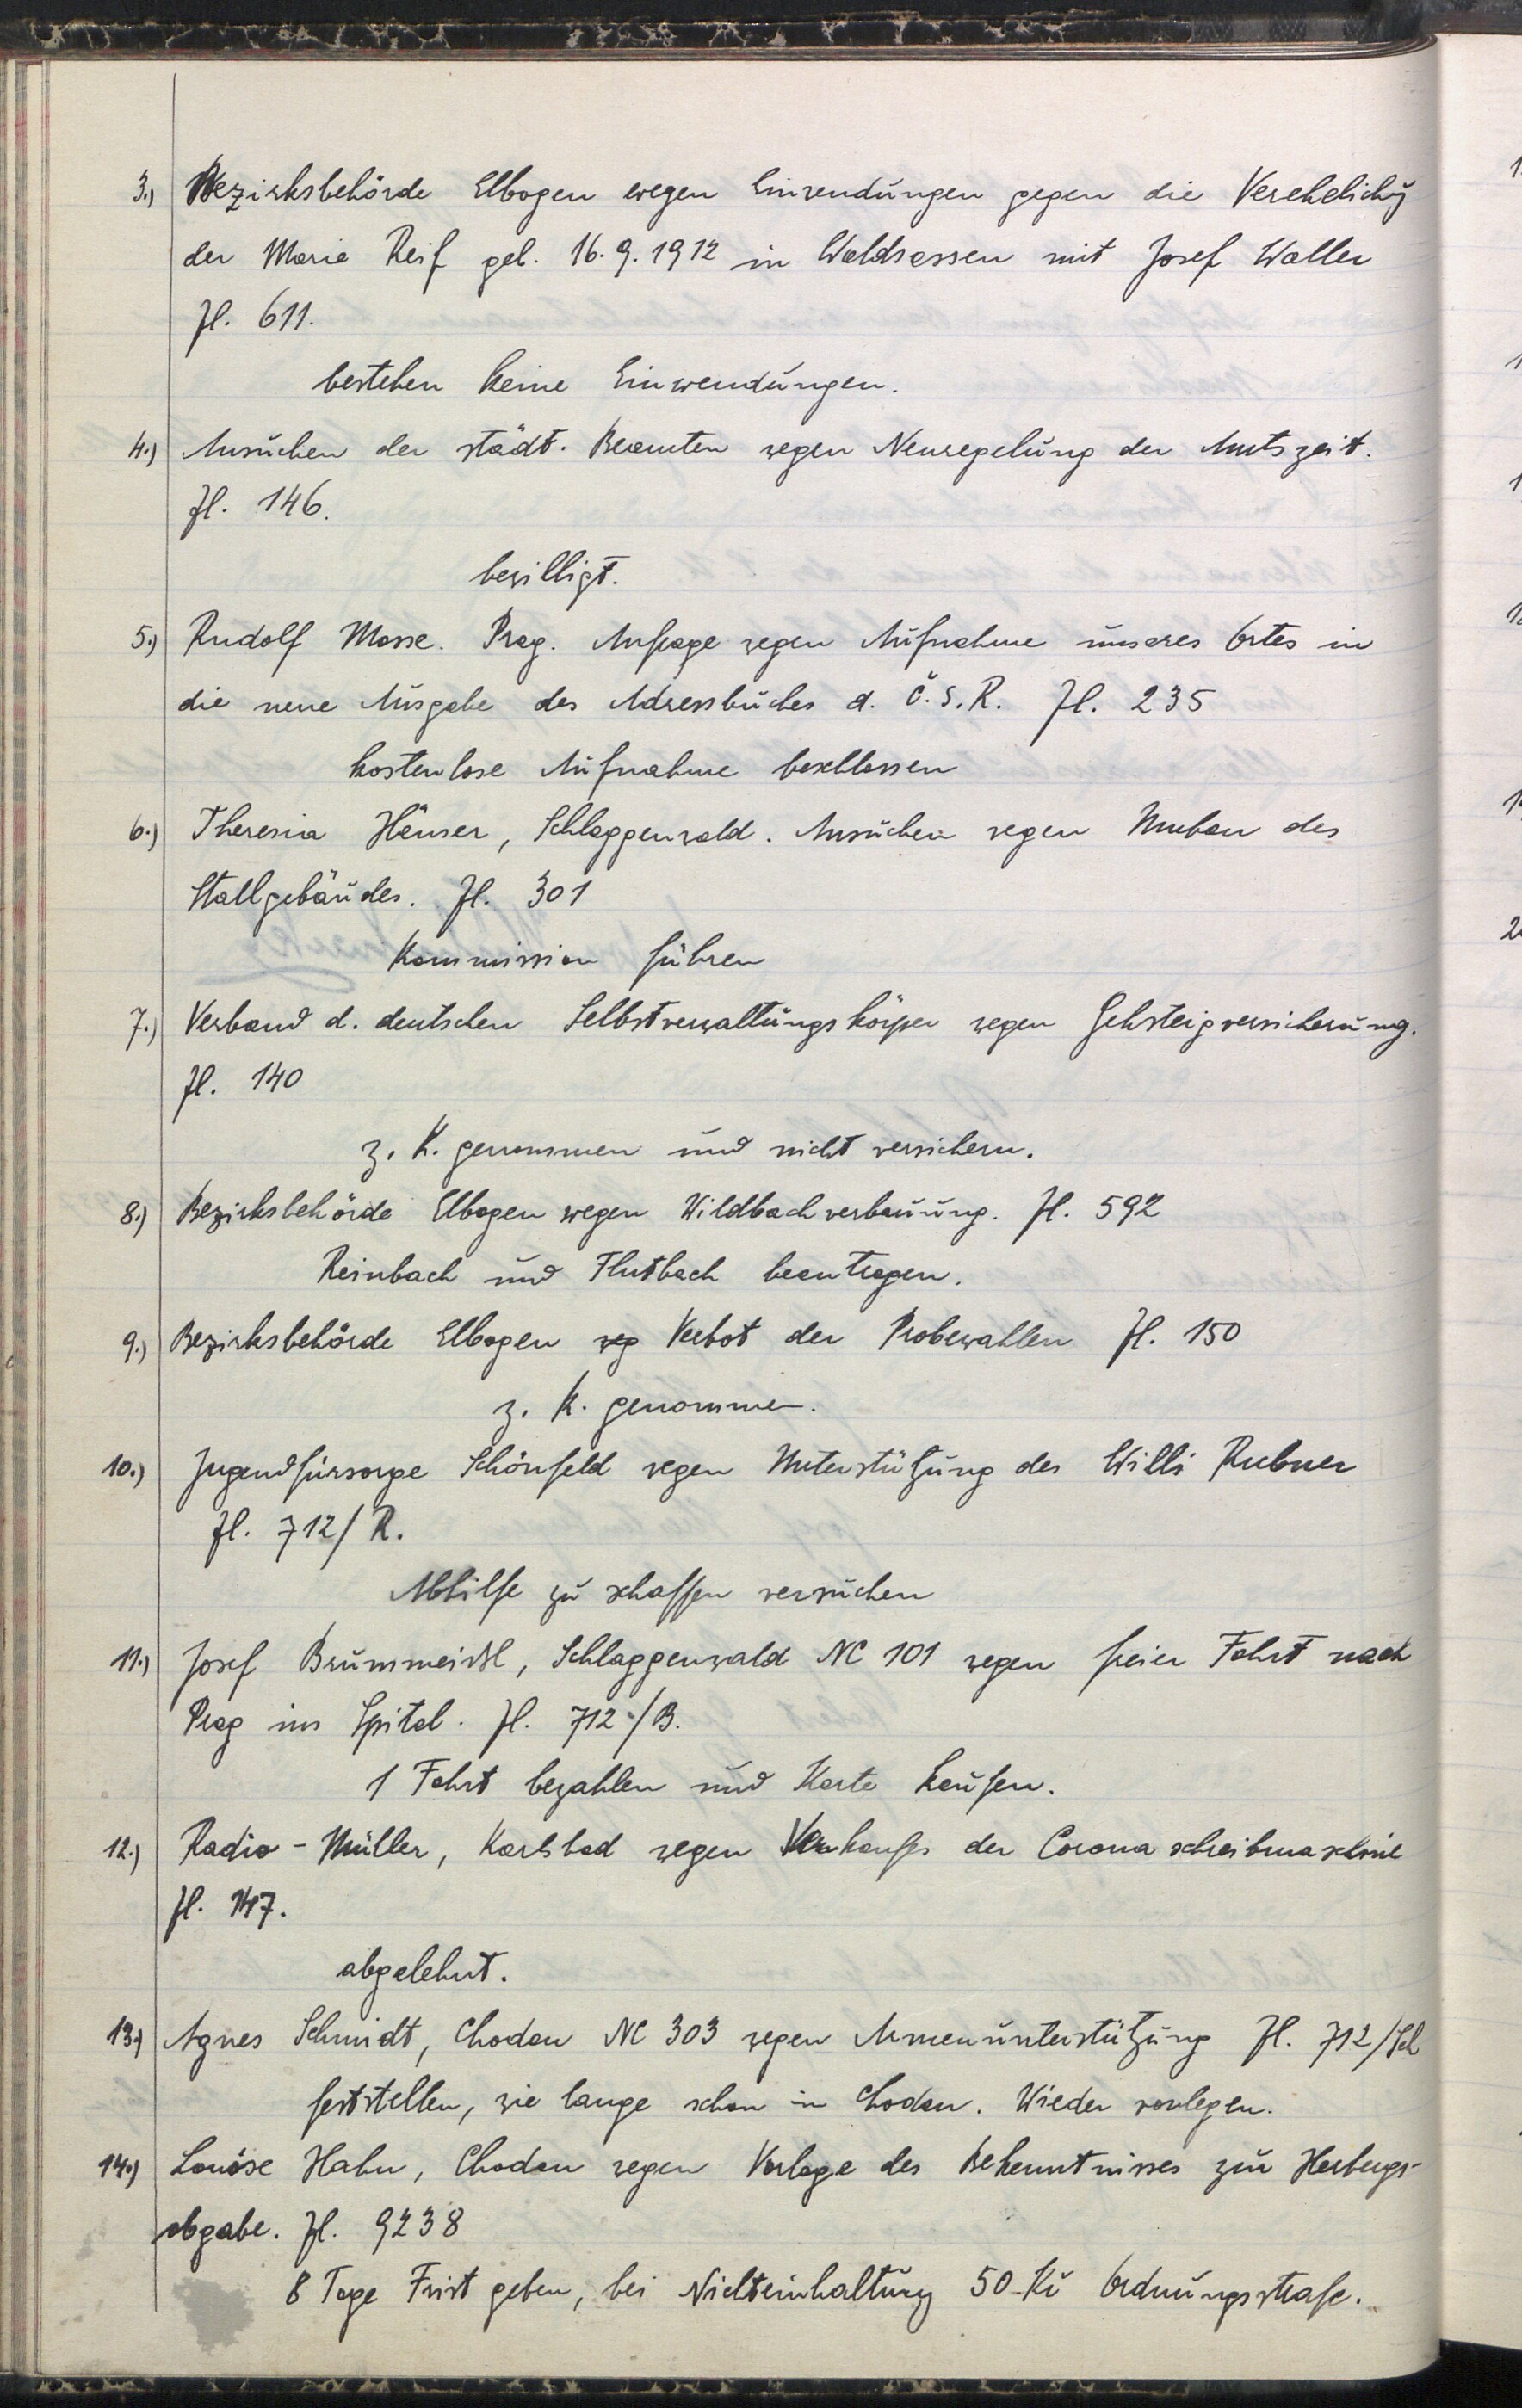 3.) Bezirksbehörde Elbogen wegen Einwendungen gegen die Verehelichg
der Marie Reif geb. 16.9.1912 in Waldsassen mit Josef Waller
Zl. 611.
bestehen keine Einwendungen.
4.) Ansuchen der städt. Beamten wegen Neuregelung der Amtszeit.
Zl. 146.
bewilligt.
5.) Rudolf Mosse. Prag. Anfrage wegen Aufnahme unseres Ortes in
die neue Ausgabe des Adressbuches d. Č.S.R. Zl. 235
kostenlose Aufnahme beschlossen
6.) Theresia Häuser, Schlaggenwald. Ansuchen wegen Umbau des
Stallgebäudes. Zl. 301
Kommission führen
7.) Verband d. deutschen Selbstverwaltungskörper wegen Gehsteigversicherung.
Zl. 140
z. K. genommen und nicht versichern.
8.) Bezirksbehörde Elbogen wegen Wildbachverbauung. Zl. 592
Reinbach und Flutbach beantragen.
9.) Bezirksbehörde Elbogen weg Verbot der Probewahlen Zl. 150
z. K. genommen.
10.) Jugendfürsorge Schönfeld wegen Unterstützung des Willi Rubner
Zl. 712/R.
Abhilfe zu schaffen versuchen
11.) Josef Brummeisl, Schlaggenwald NC 101 wegen freier Fahrt nach
Prag ins Spital. Zl. 712/B.
1 Fahrt bezahlen und Karte kaufen.
12.) Radio-Müller, Karlsbad wegen Verkaufes der Corona schreibmaschine
Zl. 147.
abgelehnt.
13.) Agnes Schmidt, Chodau NC 303 wegen Armenunterstützung Zl. 712/Sch
feststellen, wie lange schon in Chodau. Wieder vorlegen.
14.) Louise Hahn, Chodau wegen Vorlage des Bekenntnisses zur Herbergs-
abgabe. Zl. 9238
8 Tage Frist geben, bei Nichteinhaltung 50 Kč Ordnungsstrafe.